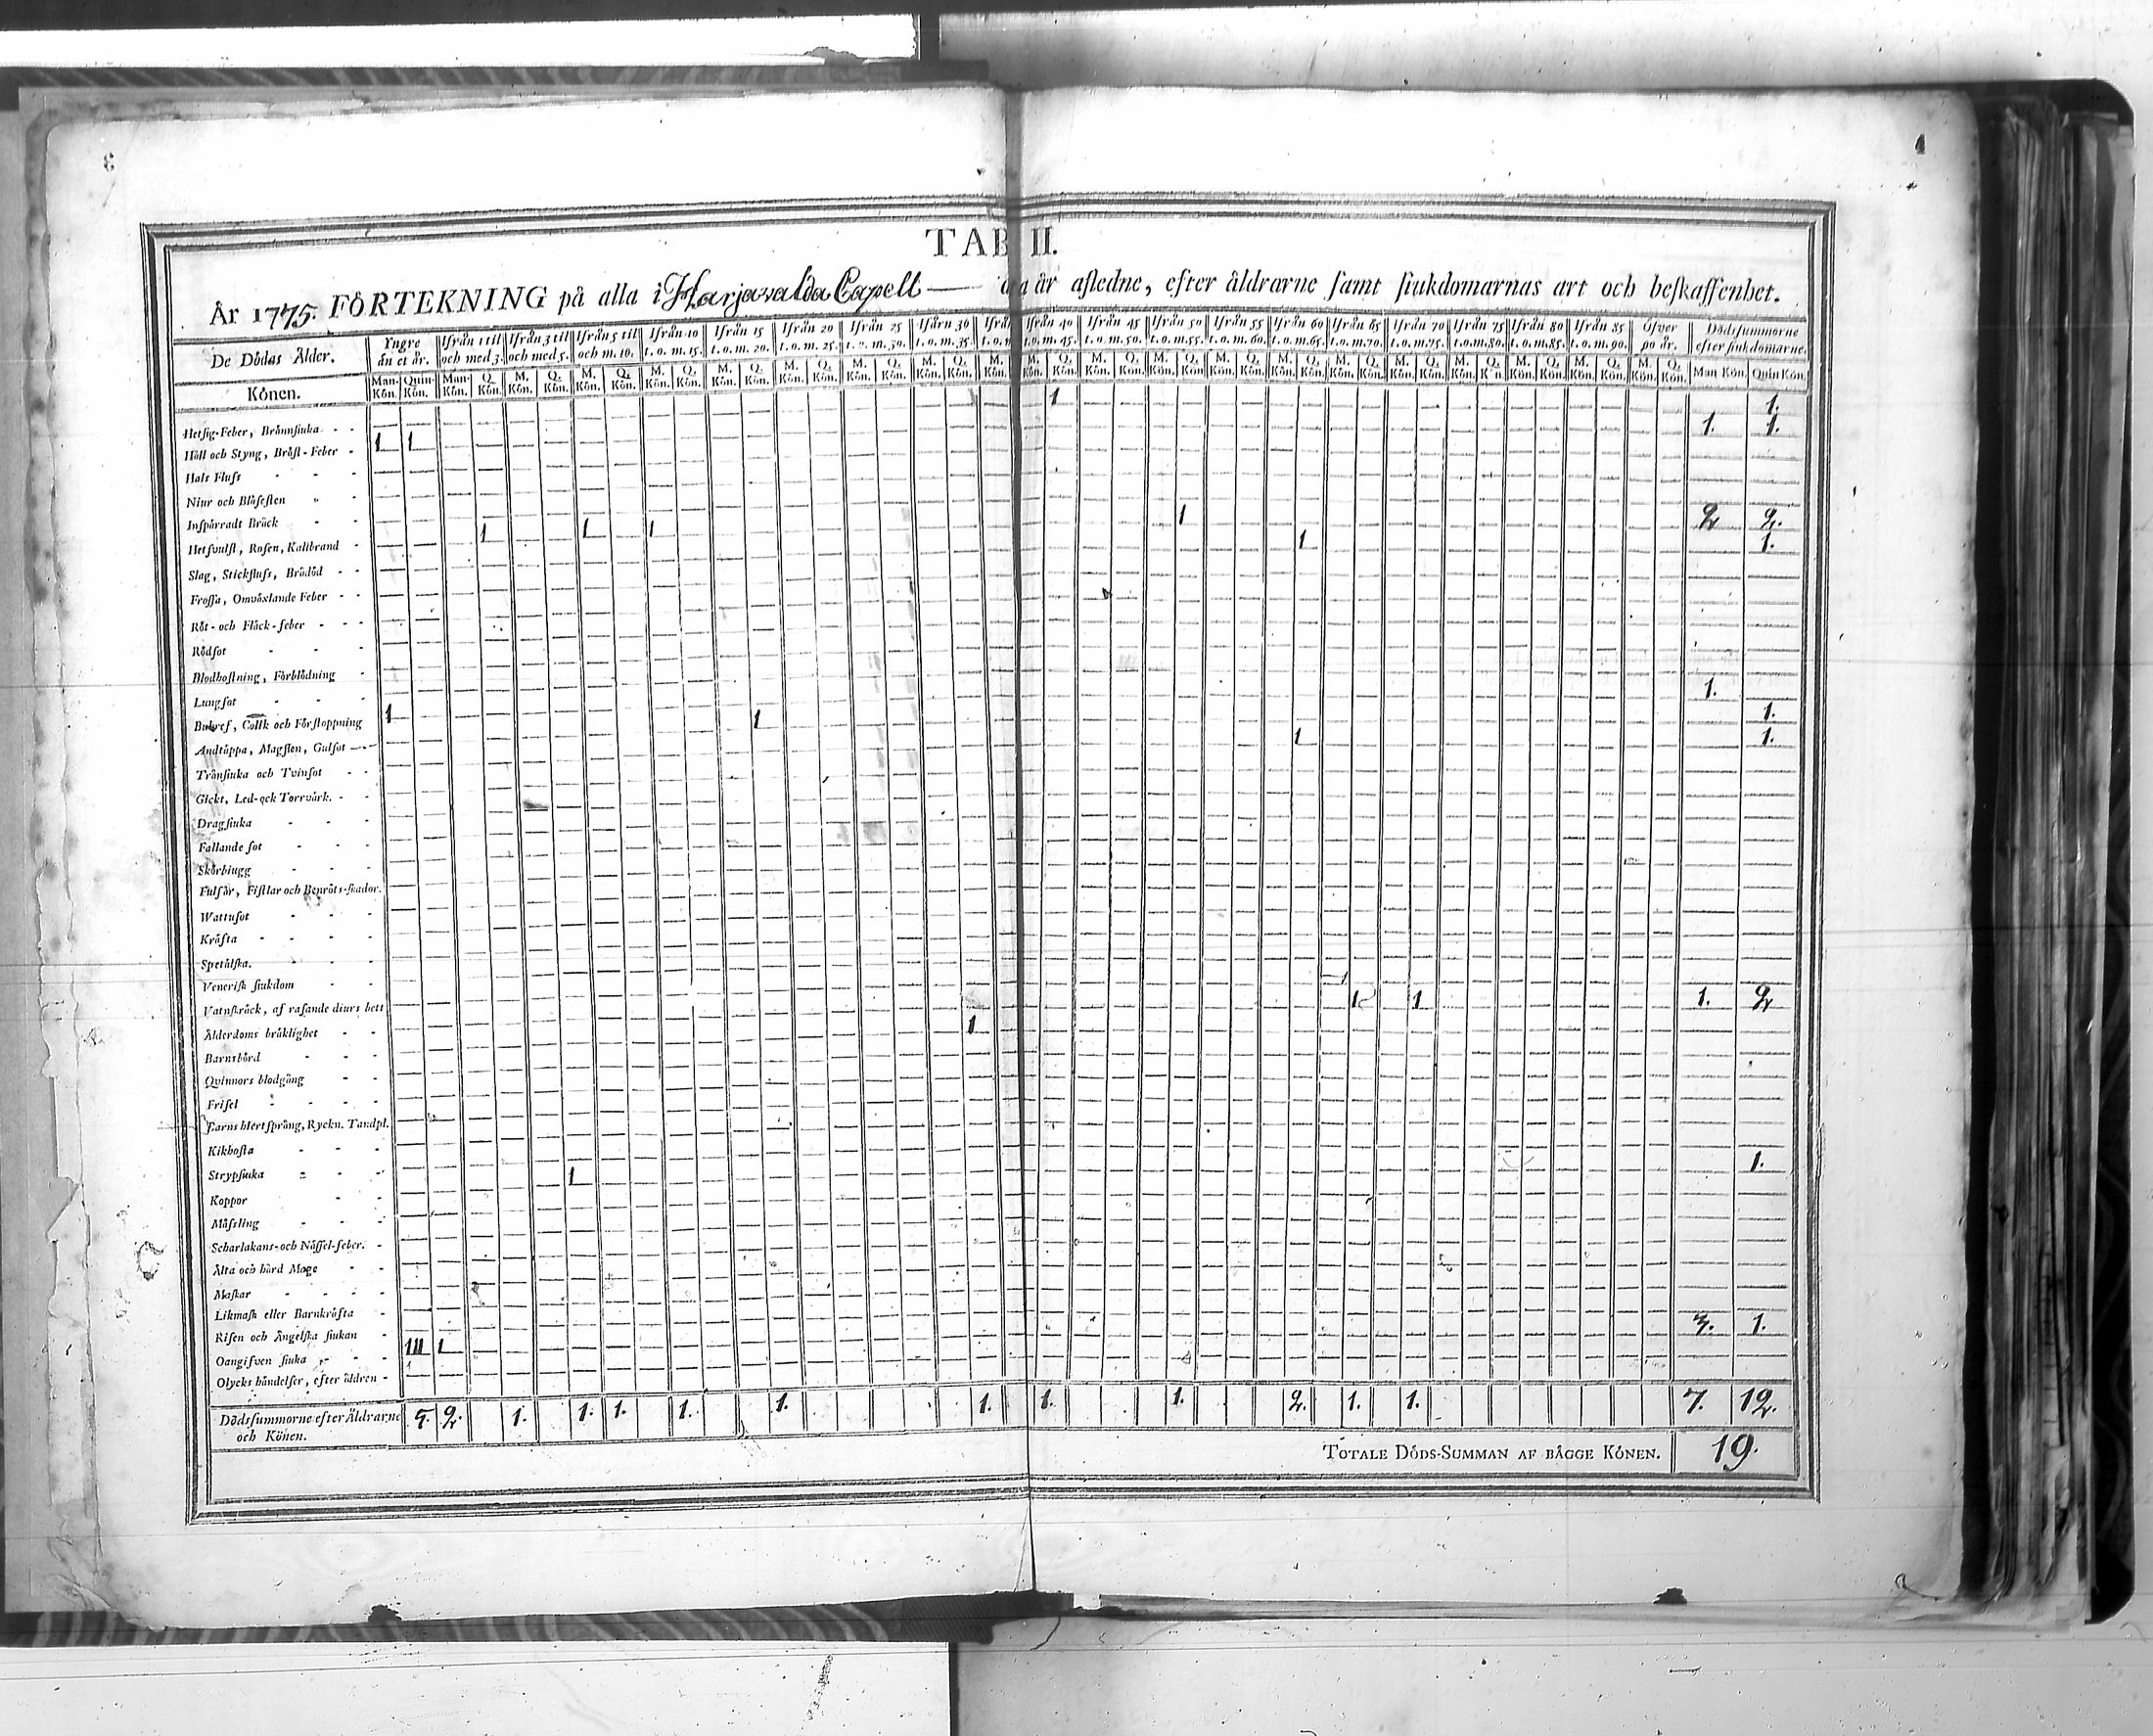 3
4
TAB II.
År 1775. FÖRTEKNING på alla i Harjavalda Capell — år afledne, efter åldrarne samt siukdomarnas art och beskaffenhet.
De Dödas Ålder. Yngre än et år. Ifrån 1 til och med 3. Ifrån 3 til och med 5. Ifrån 5 til och m. 10. Ifrån 10 t. o. m. 15. Ifrån 15 t. o. m. 20. Ifrån 20 t. o. m. 25. Ifrån 25 t. o. m. 30. Ifårn 30 t. o. m. 35. Ifrån 40 t.o.m. 45. Ifrån 45 t. o. m. 50. Ifrån 50 t.o.m. 55. Ifrån 55 t. o. m. 60. Ifrån 60 t.o.m. 65. Ifrån 65 t.o.m. 70. Ifrån 70 t.o.m. 75. Ifrån 75 t.o.m. 80. Ifrån 80 t.o.m. 85. Ifrån 85 t.o.m. 90. Öfver 90 år. Dödssummorne efter siukdomarne.
Könen. Man-Kön. Quin-Kön. Man-Kön. Q. Kön. M. Kön. Q. Kön. M. Kön. Q. Kön. M. Kön. Q. Kön. M. Kön. Q. Kön. M. Kön. Q. Kön. M. Kön. Q. Kön. M. Kön. Q. Kön. M. Kön. Q. Kön. M. Kön. Q. Kön. M. Kön. Q. Kön. M. Kön. Q. Kön. M. Kön. Q. Kön. M. Kön. Q. Kön. M. Kön. Q. Kön. M. Kön. Q. Kön. M. Kön. Q. Kön. M. Kön. Q. Kön. Man Kön. Quin Kön.
Hetsig-Feber, Brännsiuka 1 1.
Håll och Styng, Bröst-Feber 1 1 1. 1.
Hals Fluss
Niur och Blåsesten
Inspärradt Bräck
Hetsvulst, Rosen, Kallbrand 1 1 1 1 2 2.
Slag, Stickfluss, Brådöd 1 1.
Frossa, Omväxlande Feber
Röt- och Fläck-feber
Rödsot
Blodhostning, Förblödning
Lungsot
Bukref, Collk och Förstoppning 1 1.
Andtäppa, Magsten, Gulsot 1 1.
Trånsiuka och Tvinsot 1 1.
Gickt, Led- ock Torrvärk.
Dragsiuka
Fallande sot
Skörbiugg
Fulsår, Fistlar och Benröts-skador.
Wattusot
Kräfta
Spetälska.
Venerisk siukdom
Vatnskräck, af rasande diurs bett
Ålderdoms bräklighet 1 1 1. 2
Barnsbörd 1
Qvinnors blodgång
Frisel
Barns hiertsprång, Ryckn. Tandpl.
Kikhosta
Strypsiuka
Koppor 1 1.
Mässling
Scharlakans- och Nässel-feber.
Älta och hård Mage
Maskar
Likmask eller Barnkräfta
Risen och Ängelska siukan
Oangifven siuka 111 1 3. 1.
Olycks händelser, efter äldren
Dödssummorne efter Åldrarne och Könen. 5. 2. 1. 1. 1. 1. 1. 1. 1. 1. 2. 1. 1. 7. 12.
TOTALE DÖDS-SUMMAN AF BÄGGE KÖNEN. 19.